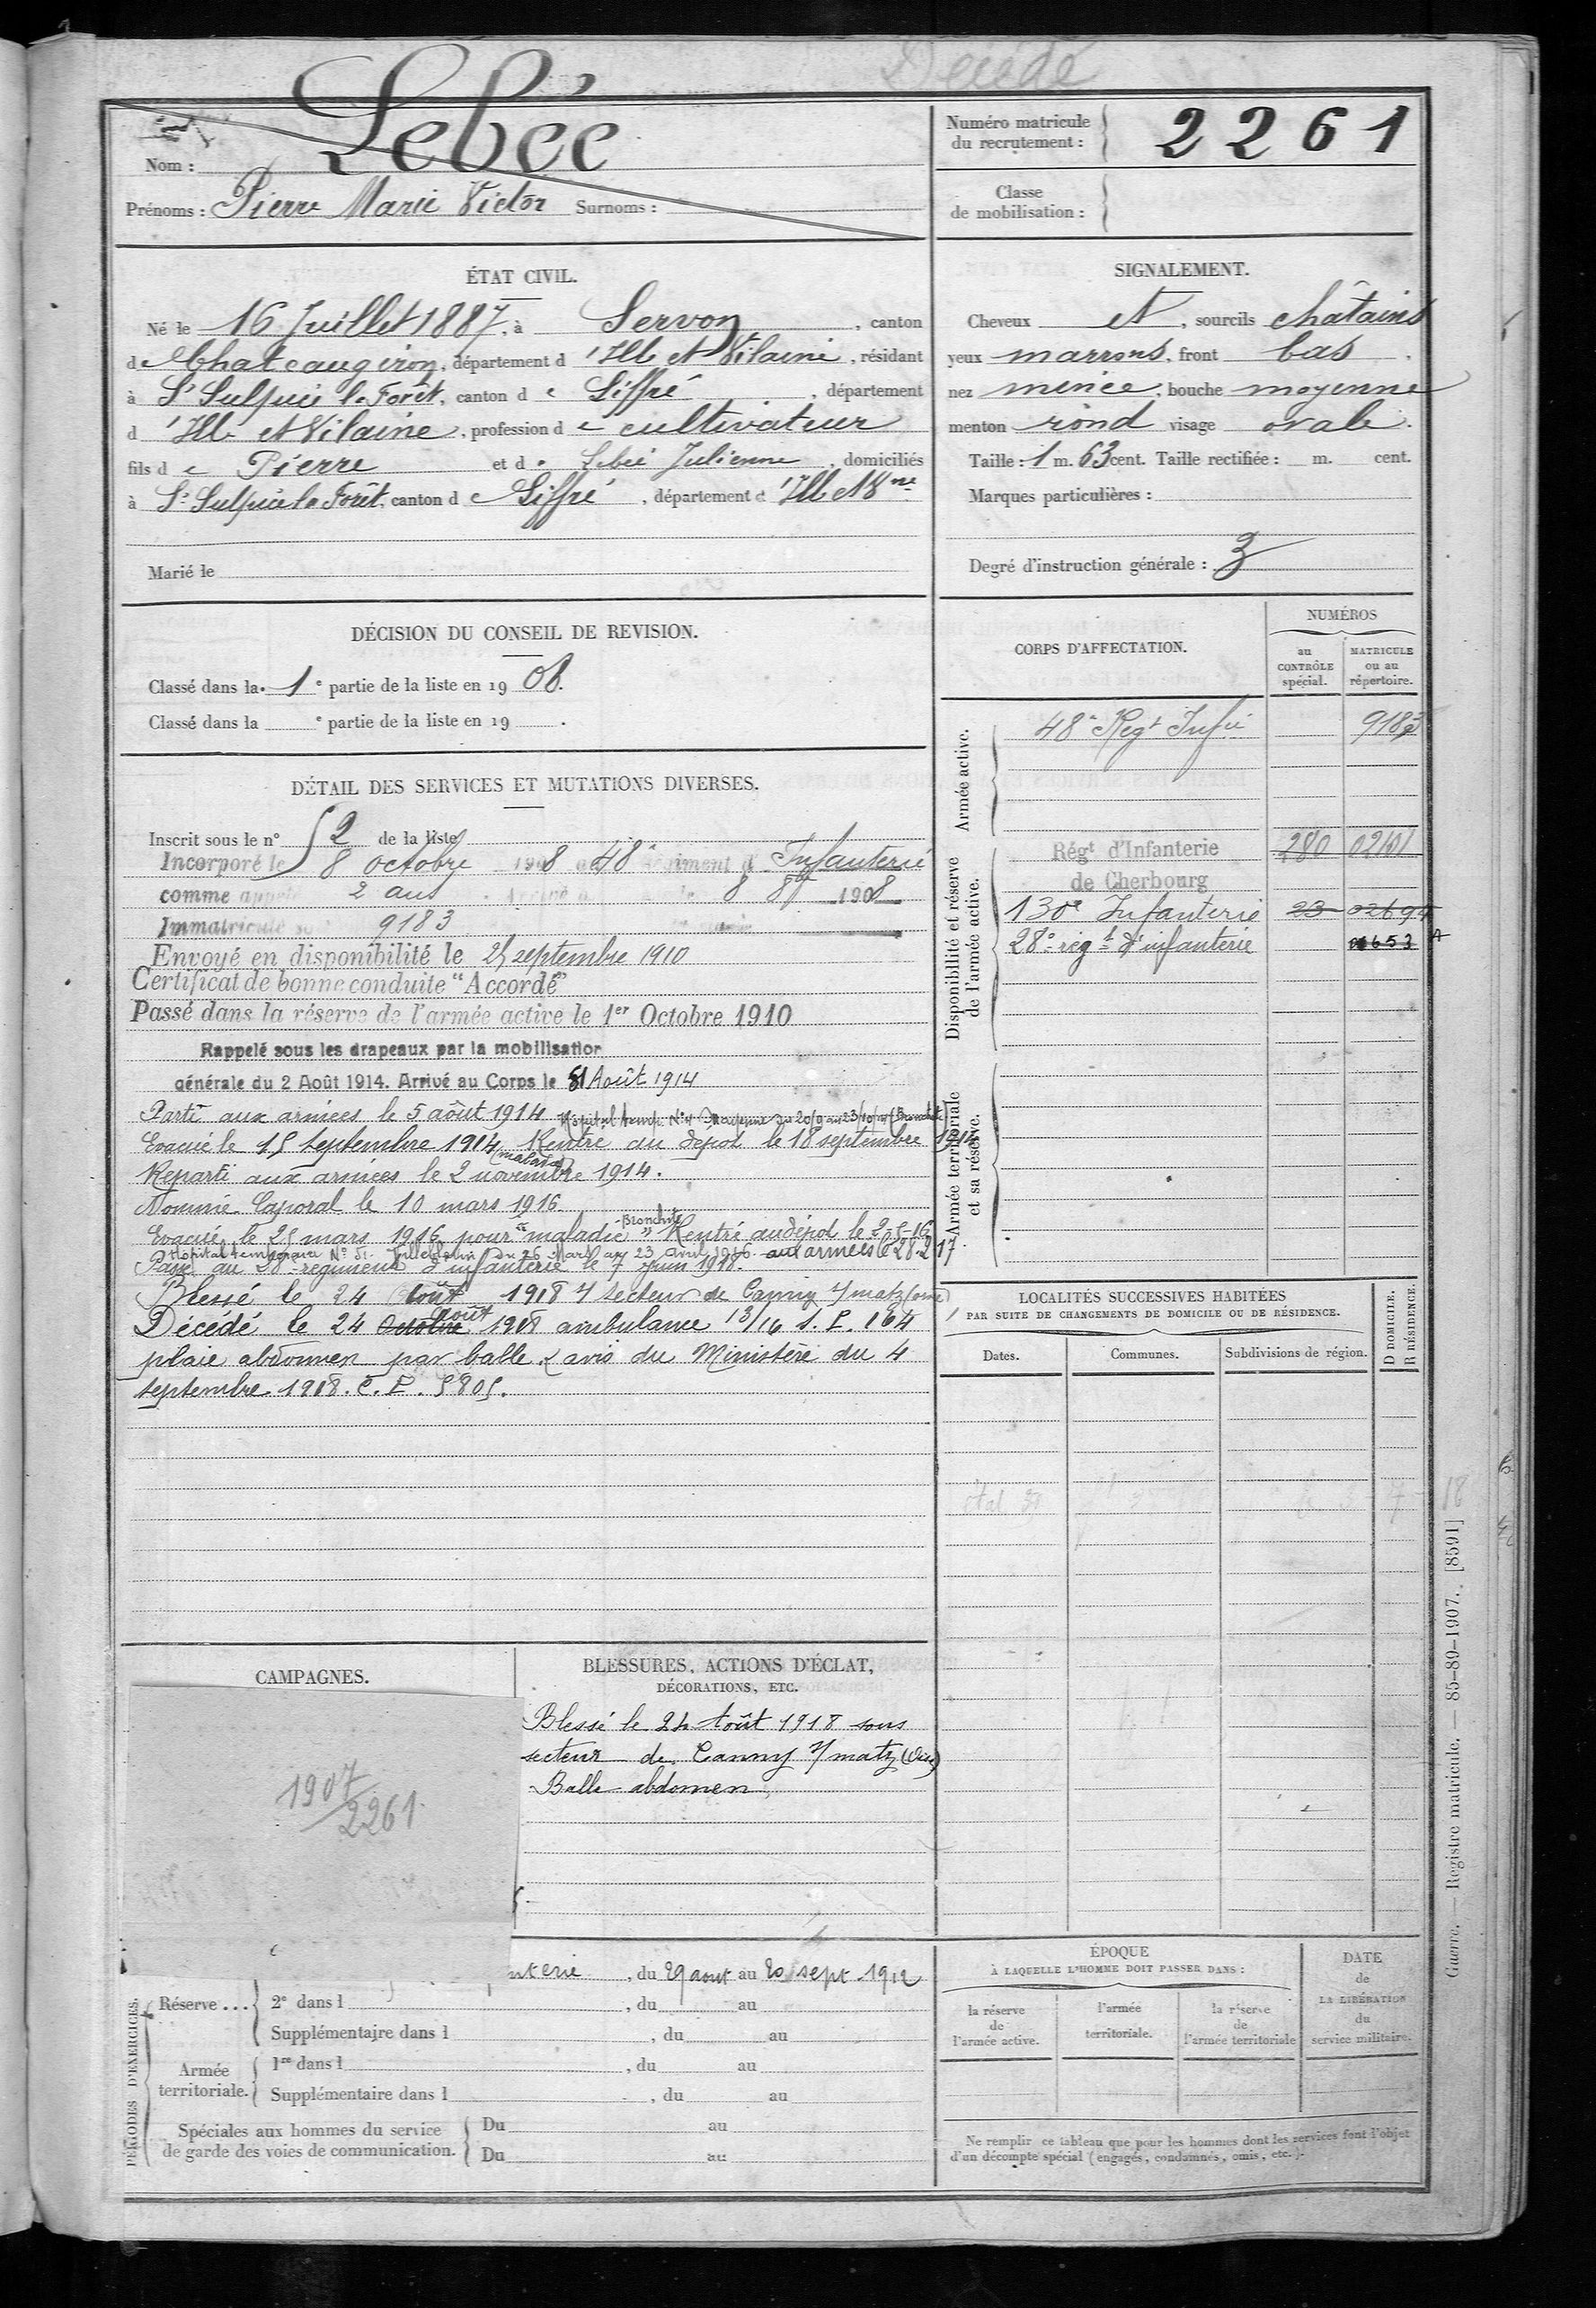 Décédé
Nom : Lebée
Prénoms : Pierre Marie Victor Surnoms :
Numéro matricule du recrutement : 2261
Classe de mobilisation :
ÉTAT CIVIL.
Né le 16 Juillet 1887, à Servon, canton
de Chateaugiron, département d'Ille et Vilaine, résidant
à St Sulpice la Forêt, canton de Liffré, département
d'Ille et Vilaine, profession de cultivateur
fils de Pierre et de Lebée Julienne, domiciliés
à St Sulpice la Forêt, canton de Liffré, département d'Ille et Vne
Marié le
SIGNALEMENT.
Cheveux et, sourcils châtains
yeux marrons, front bas,
nez mince, bouche moyenne
menton rond visage ovale.
Taille : 1 m. 63 cent. Taille rectifiée : m. cent.
Marques particulières :
Degré d'instruction générale : 3
DÉCISION DU CONSEIL DE REVISION.
Classé dans la 1e partie de la liste en 1908.
Classé dans la e partie de la liste en 19 .
DÉTAIL DES SERVICES ET MUTATIONS DIVERSES.
Inscrit sous le n° 52 de la liste
Incorporé le 8 octobre 1908 au 48e régiment d'Infanterie
comme appelé 2 ans 8 8bre 1908
Immatriculé 9183
Envoyé en disponibilité le 25 septembre 1910
Certificat de bonne conduite "Accordé"
Passé dans la réserve de l'armée active le 1er Octobre 1910
Rappelé sous les drapeaux par la mobilisation
générale du 2 Août 1914. Arrivé au Corps le Août 1914
Parti aux armées le 5 août 1914
Evacué le 15 septembre 1914 (malade) Rentré au dépôt le 18 septembre 1914
Reparti aux armées le 2 novembre 1914.
Nommé Caporal le 10 mars 1916
Evacué le 25 mars 1916 pour "maladie" Bronchite Rentré au dépôt le 2-5-16
Hôpital temporaire N° 51 du 26 Mars au 23 Avril 1916 aux armées le 28-2-17
Passé au 28e régiment d'infanterie le 7 juin 1918.
Blessé le 24 Août 1918 secteur de Canny s/ matz (oise)
Décédé le 24 Octobre août 1918 ambulance 13/16 S.P. 164
plaie abdomen par balle (avis du Ministère du 4
septembre 1918. C.L. 5805.
CORPS D'AFFECTATION.
NUMÉROS
au CONTRÔLE spécial.
MATRICULE ou au répertoire.
Armée active.
48e Regt Infie 9183
Disponibilité et réserve de l'armée active.
Régt d'Infanterie 280
de Cherbourg
130e Infanterie 23 02694
28e régt d'infanterie
Armée territoriale et sa réserve.
LOCALITÉS SUCCESSIVES HABITÉES
PAR SUITE DE CHANGEMENTS DE DOMICILE OU DE RÉSIDENCE.
Dates. Communes. Subdivisions de région. D DOMICILE. R RÉSIDENCE.
CAMPAGNES.
1907
2261
BLESSURES, ACTIONS D'ÉCLAT,
DÉCORATIONS, ETC.
Blessé le 24 Août 1918 sous
secteur de Canny s/ matz (Oise)
Balle abdomen
PÉRIODES D'EXERCICES.
nterie, du 29 aout au 20 sept 1912
Réserve... 2e dans l , du au
Supplémentaire dans l , du au
Armée territoriale. 1re dans l , du au
Supplémentaire dans l , du au
Spéciales aux hommes du service
de garde des voies de communication.
Du au
Du au
ÉPOQUE
À LAQUELLE L'HOMME DOIT PASSER DANS :
la réserve de l'armée active.
l'armée territoriale.
la réserve de l'armée territoriale
DATE de LA LIBÉRATION du service militaire.
Ne remplir ce tableau que pour les hommes dont les services font l'objet
d'un décompte spécial (engagés, condamnés, omis, etc.).
Guerre. — Registre matricule. — 85-89-1907. [8591]